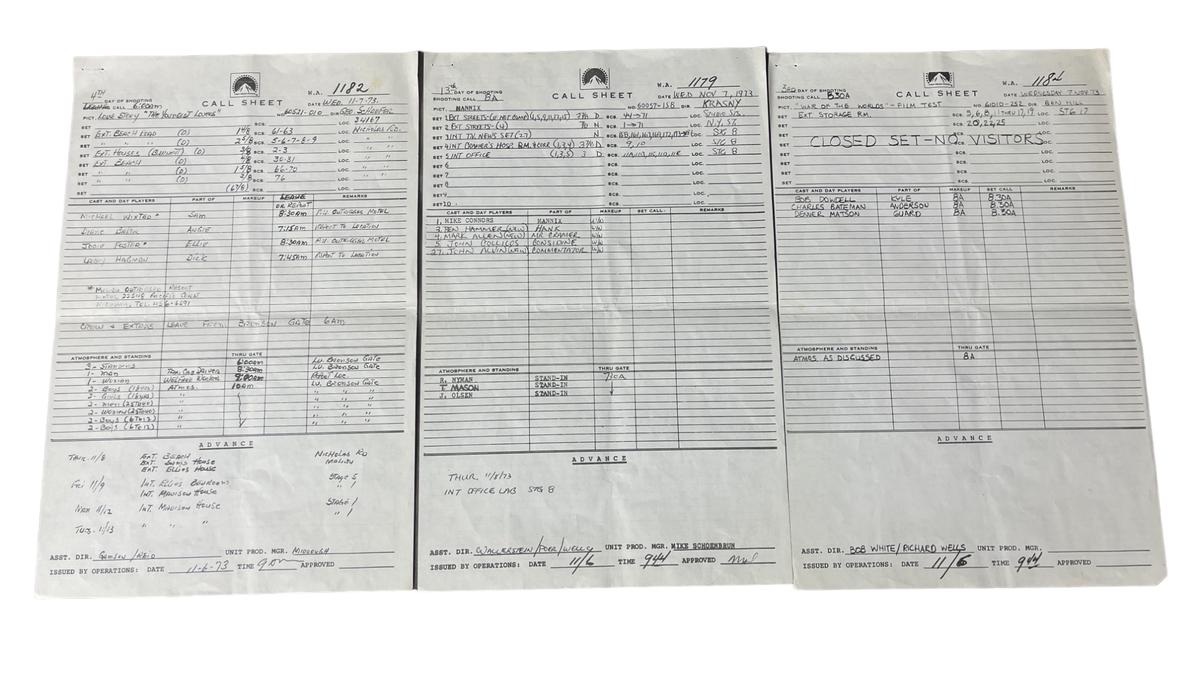 4TH DAY OF SHOOTING
W.A. 1182
CALL SHEET
SHOOTING CALL 6:00am
DATE WED. 11-7-73
PICT. Love Story "The Youngest Lovers"
NO. 60521-010 DIR.
SET EXT. BEACH ROAD (D) 1 4/8 SCS. 61-63 LOC. NICHOLAS RD.
SET " " (D) 2 5/8 SCS. 5-6-7-8-9 LOC. " "
SET EXT. HOUSES (D) SCS. 2-3 LOC. " "
SET EXT. BEACH (D) SCS. 30-31 LOC. " "
SET " " (D) SCS. 66-70 LOC. " "
SET " " (D) SCS. 76 LOC. " "
SET (6 7/8) SCS. LOC.
CAST AND DAY PLAYERS PART OF MAKEUP LEAVE OR REPORT REMARKS
MICHAEL WIXTED * SAM 8:30am P.U. OUTRIGGER MOTEL
DIANE BAKER AUGIE 7:15am REPORT TO LOCATION
JODIE FOSTER * ELLIE 8:30am P.U. OUTRIGGER MOTEL
LARRY HAGMAN DICK 7:45am REPORT TO LOCATION
* MALIBU OUTRIGGER RESORT
MOTEL 22548 PACIFIC COAST
CREW & EXTRAS LEAVE FROM BRONSON GATE 6AM
ATMOSPHERE AND STANDING THRU GATE
3 - STANDINS 6:00am LV. BRONSON GATE
1 - MAN TAXI CAB DRIVER 8:30am LV. BRONSON GATE
1 - WOMAN WELFARE WORKER 8:00am REPORT LOC.
2 - BOYS (16YRS) ATMOS. 10am LV. BRONSON GATE
2 - GIRLS (16YRS) " " "
2 - MEN (25 TO 40) " " "
2 - WOMEN (25 TO 40) " " "
2 - BOYS (6 TO 12) " " "
2 - BOYS (6 TO 12) " " "
ADVANCE
THUR. 11/8 EXT. BEACH NICHOLAS RD
EXT. SAMS HOUSE MALIBU
EXT. ELLIES HOUSE
FRI 11/9 INT. ELLIES BEDROOMS STAGE 5
INT. MADISON HOUSE " 1
MON 11/12 INT. MADISON HOUSE STAGE 1
TUES. 11/13 " " " 1
ASST. DIR. UNIT PROD. MGR.
ISSUED BY OPERATIONS: DATE 11-6-73 TIME 9am APPROVED
13th DAY OF SHOOTING
W.A. 1179
CALL SHEET
SHOOTING CALL 8A
DATE WED NOV 7, 1973
PICT. MANNIX
NO. 60057-158 DIR. KRASNY
SET 1 EXT STREETS D SCS. 44→71 LOC. STUDIO STS.
SET 2 EXT STREETS (4) N SCS. 1→71 LOC. N.Y. ST
SET 3 INT TV NEWS SET (27) N SCS. LOC. STG 8
SET 4 INT COOPER'S HOSP. RM. D SCS. 9, 10 LOC. STG 8
SET 5 INT OFFICE (1,3,5) 3 D SCS. LOC. STG 8
SET 6 SCS. LOC.
SET 7 SCS. LOC.
SET 8 SCS. LOC.
SET 9 SCS. LOC.
SET 10 SCS. LOC.
CAST AND DAY PLAYERS PART OF MAKEUP SET CALL REMARKS
1, MIKE CONNORS MANNIX W/N
3, BEN HAMMER (NEW) HANK W/N
4, MARK ALLEN (NEW) W/N
5, JOHN COLLICOS CONSIDINE W/N
27, JOHN ALVIN (NEW) COMMENTATOR W/N
ATMOSPHERE AND STANDING THRU GATE
R. NYMAN STAND-IN 730A
T MASON STAND-IN
J. OLSEN STAND-IN
ADVANCE
THUR 11/8/73
INT OFFICE LAB STG 8
ASST. DIR. WALLERSTEIN/POER/WELLY UNIT PROD. MGR. MIKE SCHOENBRUN
ISSUED BY OPERATIONS: DATE 11/6 TIME 944 APPROVED
3RD DAY OF SHOOTING
W.A. 1184
CALL SHEET
SHOOTING CALL 830A
DATE WEDNESDAY 7 NOV 73
PICT. "WAR OF THE WORLDS" - FILM TEST
NO. 61010-252 DIR. BEN HILL
SET EXT. STORAGE RM. SCS. 5,6,8,11 THRU 17,19 LOC. STG 17
SET SCS. 20,22,25 LOC.
CLOSED SET - NO VISITORS
CAST AND DAY PLAYERS PART OF MAKEUP SET CALL REMARKS
BOB DOWDELL KYLE 8A 8 30A
CHARLES BATEMAN ANDERSON 8A 8 30A
DENVER MATSON GUARD 8A 8 30A
ATMOSPHERE AND STANDING THRU GATE
ATMOS. AS DISCUSSED 8A
ADVANCE
ASST. DIR. BOB WHITE/RICHARD WELLS UNIT PROD. MGR.
ISSUED BY OPERATIONS: DATE 11/6 TIME 944 APPROVED